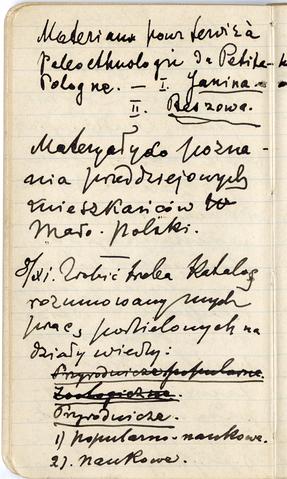 Materiaux pour servir à
paleoethnologie de la Petite-
Pologne. — I. Janina.
II. Rzeszowa.
Materyały do pozna-
nia przeddziejowych
mieszkańców
Mało-polski.
8/XI. Zrobić trzeba Katalog
rozumowany mych
prac, podzielonych na
działy wiedzy:
Przyrodnicze popularne
Zoologiczne.
Przyrodnicze.
1) popularno-naukowe.
2). naukowe.